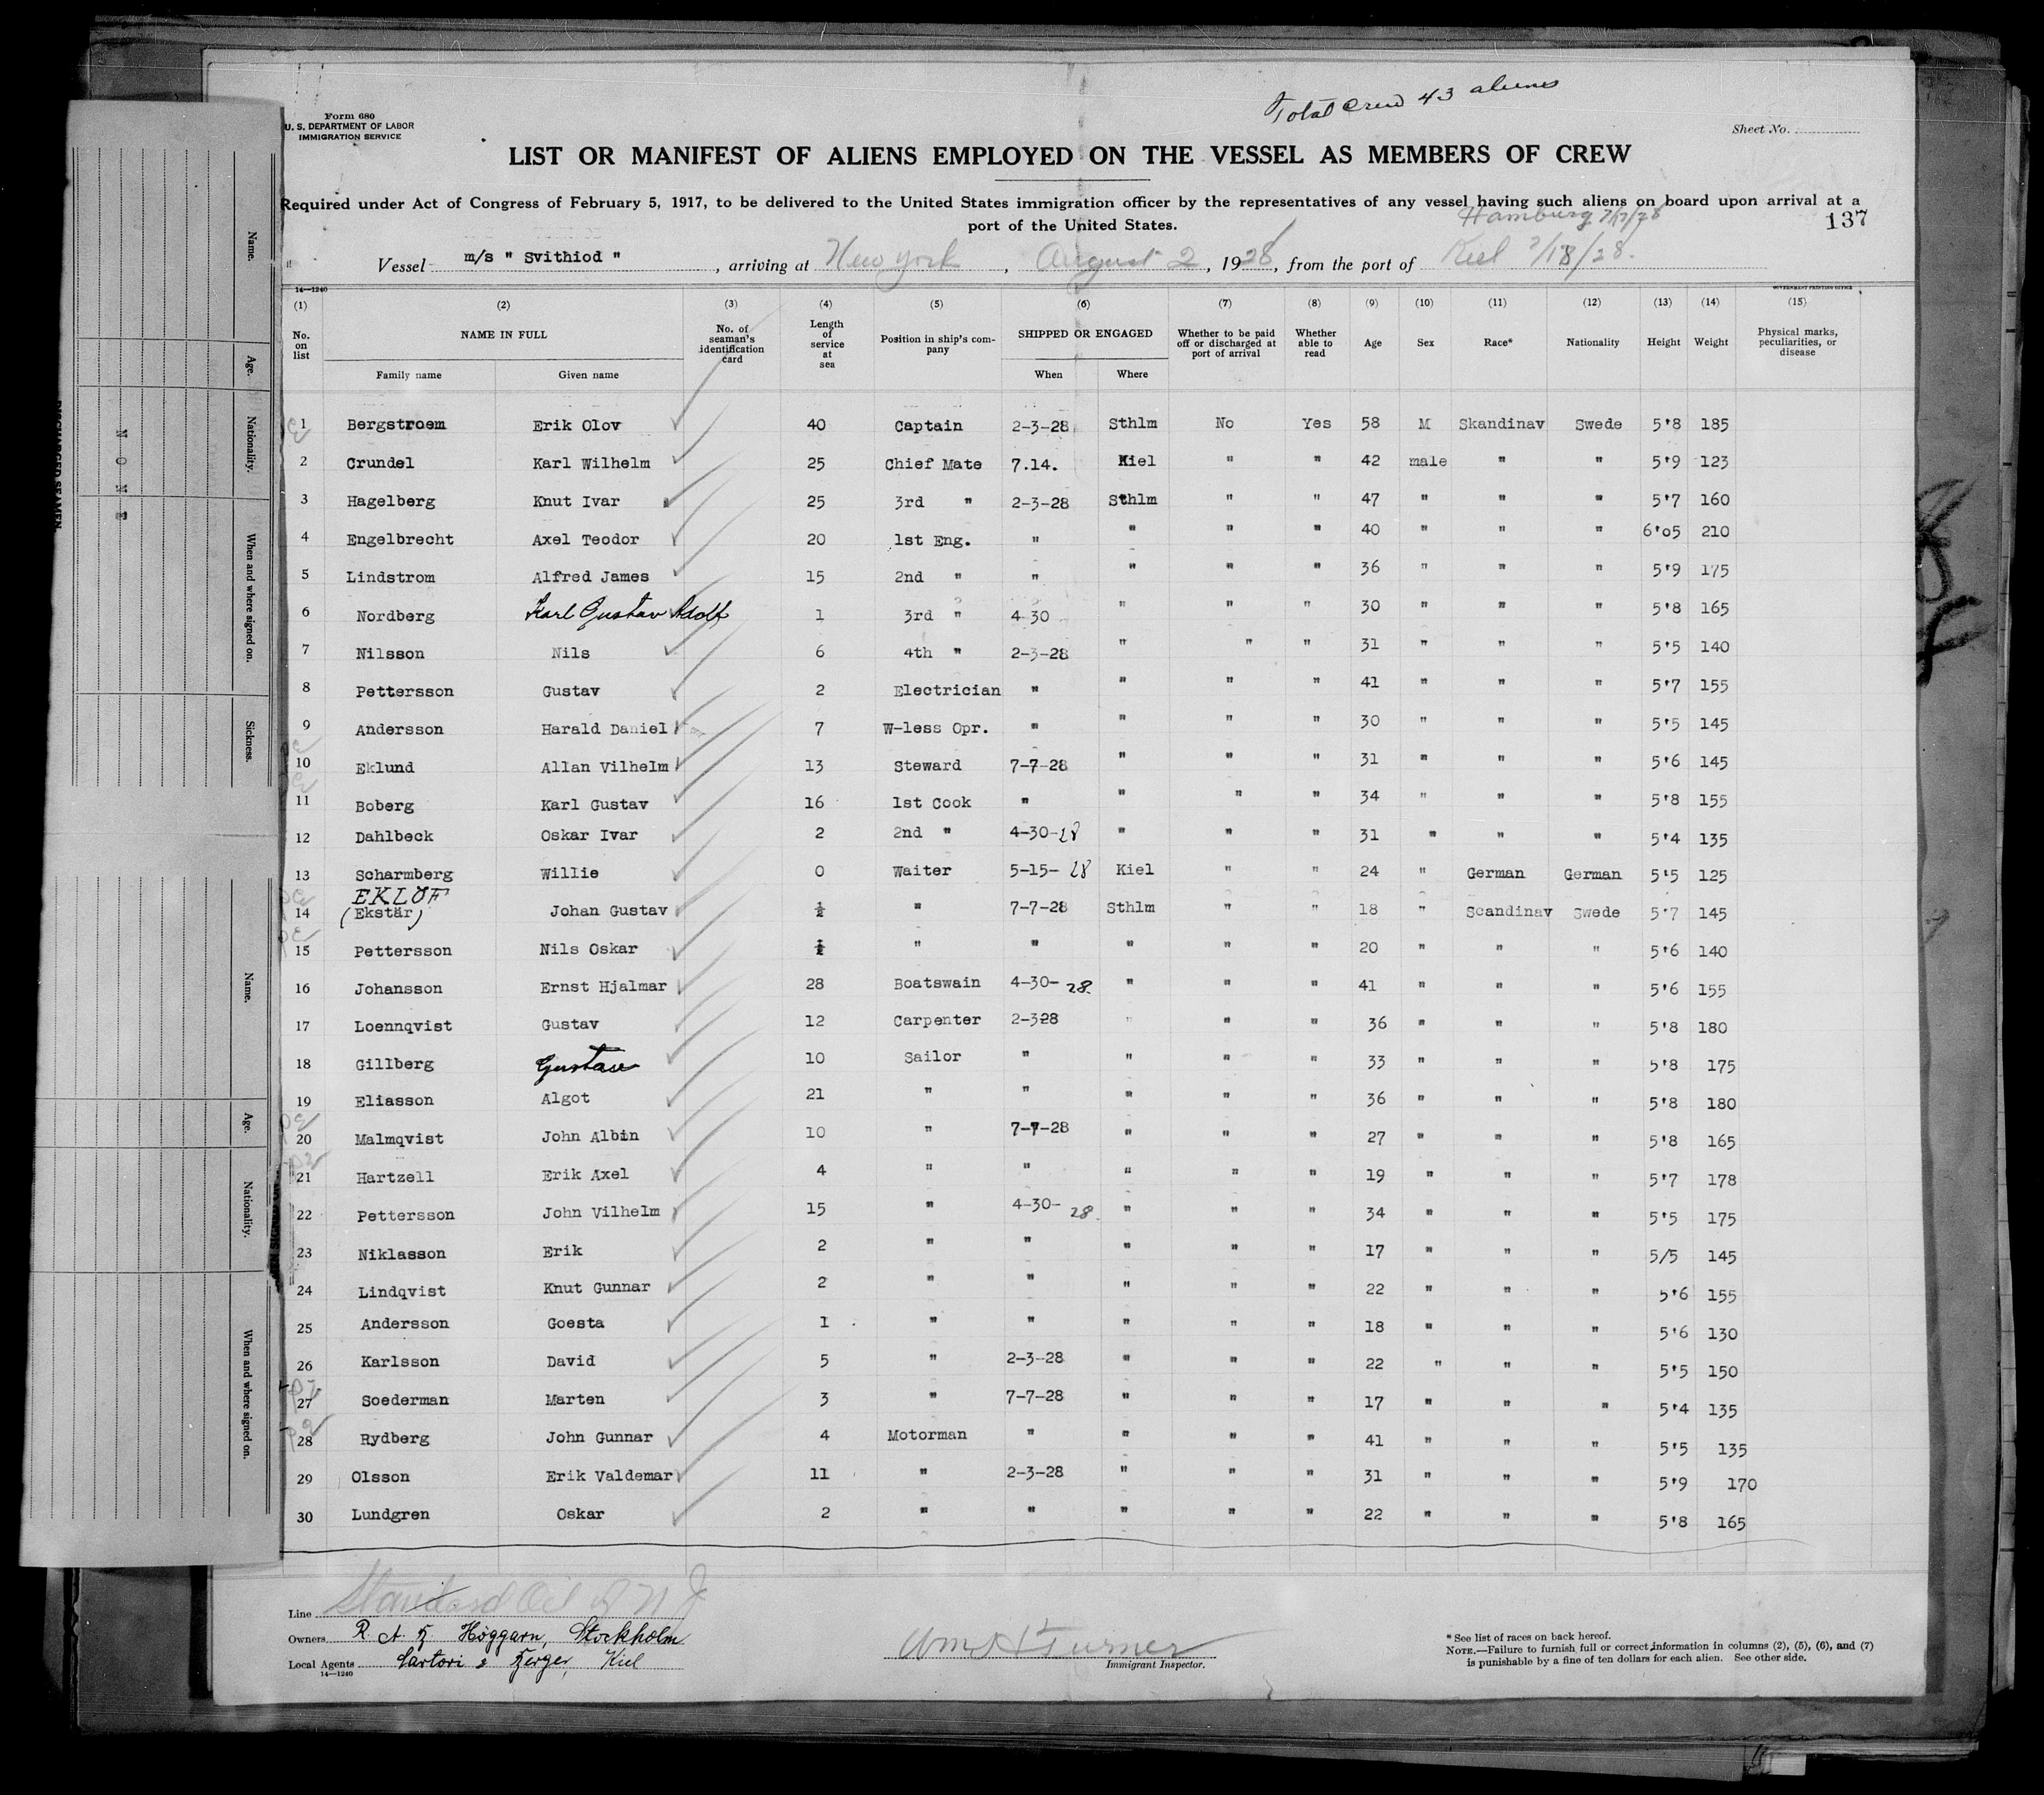 Total Crew 43 aliens
Form 680
U. S. DEPARTMENT OF LABOR
IMMIGRATION SERVICE
Sheet No.
LIST OR MANIFEST OF ALIENS EMPLOYED ON THE VESSEL AS MEMBERS OF CREW
Required under Act of Congress of February 5, 1917, to be delivered to the United States immigration officer by the representatives of any vessel having such aliens on board upon arrival at a
port of the United States.
Hamburg 7/17/28
137
Vessel m/s " Svithiod " , arriving at New York , August 2 , 1928 , from the port of Kiel 7/18/28.
14—1240
GOVERNMENT PRINTING OFFICE
(1) (2) (3) (4) (5) (6) (7) (8) (9) (10) (11) (12) (13) (14) (15)
No. on list NAME IN FULL Family name Given name No. of seaman's identification card Length of service at sea Position in ship's company SHIPPED OR ENGAGED When Where Whether to be paid off or discharged at port of arrival Whether able to read Age Sex Race* Nationality Height Weight Physical marks, peculiarities, or disease
1 Bergstroem Erik Olov 40 Captain 2-3-28 Sthlm No Yes 58 M Skandinav Swede 5'8 185
2 Crundel Karl Wilhelm 25 Chief Mate 7.14. Kiel " " 42 male " " 5'9 123
3 Hagelberg Knut Ivar 25 3rd " 2-3-28 Sthlm " " 47 " " " 5'7 160
4 Engelbrecht Axel Teodor 20 1st Eng. " " " " 40 " " " 6'05 210
5 Lindstrom Alfred James 15 2nd " " " " " 36 " " " 5'9 175
6 Nordberg Karl Gustav Adolf 1 3rd " 4 30 " " " 30 " " " 5'8 165
7 Nilsson Nils 6 4th " 2-3-28 " " " 31 " " " 5'5 140
8 Pettersson Gustav 2 Electrician " " " " 41 " " " 5'7 155
9 Andersson Harald Daniel 7 W-less Opr. " " " " 30 " " " 5'5 145
10 Eklund Allan Vilhelm 13 Steward 7-7-28 " " " 31 " " " 5'6 145
11 Boberg Karl Gustav 16 1st Cook " " " " 34 " " " 5'8 155
12 Dahlbeck Oskar Ivar 2 2nd " 4-30-28 " " " 31 " " " 5'4 135
13 Scharmberg Willie 0 Waiter 5-15-28 Kiel " " 24 " German German 5'5 125
EKLÖF
14 (Ekstär) Johan Gustav ½ " 7-7-28 Sthlm " " 18 " Scandinav Swede 5'7 145
15 Pettersson Nils Oskar ½ " " " " " 20 " " " 5'6 140
16 Johansson Ernst Hjalmar 28 Boatswain 4-30-28. " " " 41 " " " 5'6 155
17 Loennqvist Gustav 12 Carpenter 2-328 " " " 36 " " " 5'8 180
18 Gillberg Gustav 10 Sailor " " " " 33 " " " 5'8 175
19 Eliasson Algot 21 " " " " " 36 " " " 5'8 180
20 Malmqvist John Albin 10 " 7-7-28 " " " 27 " " " 5'8 165
21 Hartzell Erik Axel 4 " " " " " 19 " " " 5'7 178
22 Pettersson John Vilhelm 15 " 4-30-28. " " " 34 " " " 5'5 175
23 Niklasson Erik 2 " " " " " 17 " " " 5/5 145
24 Lindqvist Knut Gunnar 2 " " " " " 22 " " " 5'6 155
25 Andersson Goesta 1 " " " " " 18 " " " 5'6 130
26 Karlsson David 5 " 2-3-28 " " " 22 " " " 5'5 150
27 Soederman Marten 3 " 7-7-28 " " " 17 " " " 5'4 135
28 Rydberg John Gunnar 4 Motorman " " " " 41 " " " 5'5 135
29 Olsson Erik Valdemar 11 " 2-3-28 " " " 31 " " " 5'9 170
30 Lundgren Oskar 2 " " " " " 22 " " " 5'8 165
Line Standard Oil of N J
Owners R. A. Höggarn, Stockholm
Local Agents Sartori & Berger, Kiel
14—1240
Wm H Turner
Immigrant Inspector.
* See list of races on back hereof.
NOTE.—Failure to furnish full or correct information in columns (2), (5), (6), and (7)
is punishable by a fine of ten dollars for each alien. See other side.
DISCHARGED SEAMEN
Name. Age. Nationality. When and where signed on. Sickness.
NONE
Name. Age. Nationality. When and where signed on.